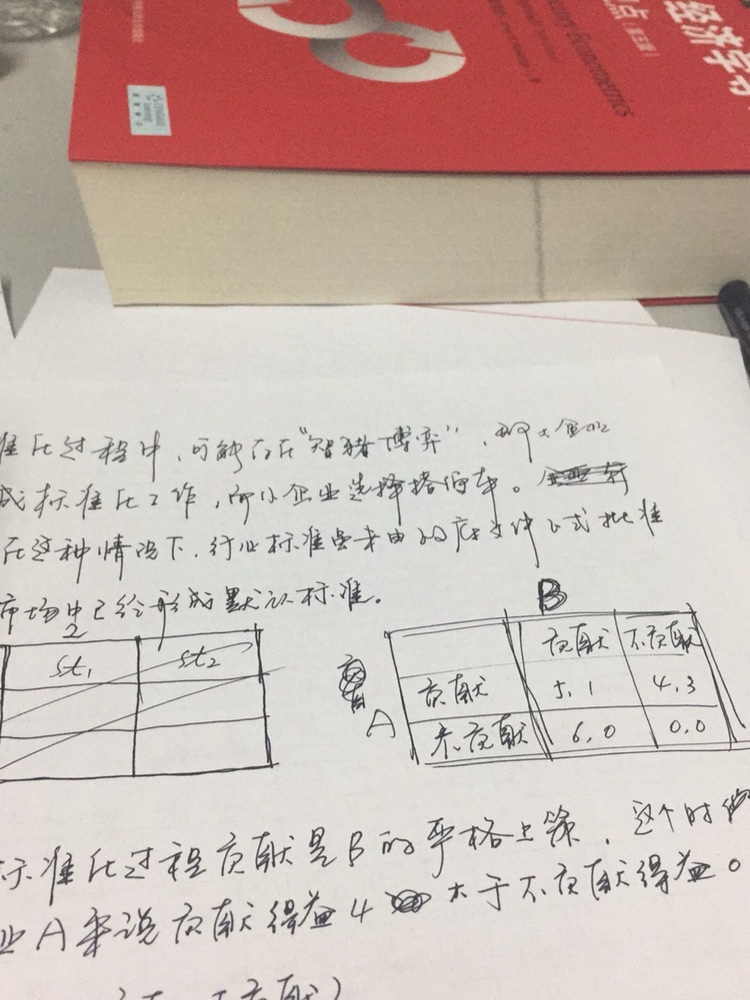 经济学
点
准化过程中,可能存在“智猪博弈”,即大企业
成标准化工作,而小企业选择搭便车。
在这种情况下,行业标准
文件
式批准
市场中已经形成默认标准。
2
st₁ st₂
B
贡献 不贡献
贡献 5,1 4,3
A
不贡献 6,0 0,0
标准化过程贡献是B的严格上策,这个时候
业A来说贡献得益4 大于不贡献得益0
贡献)